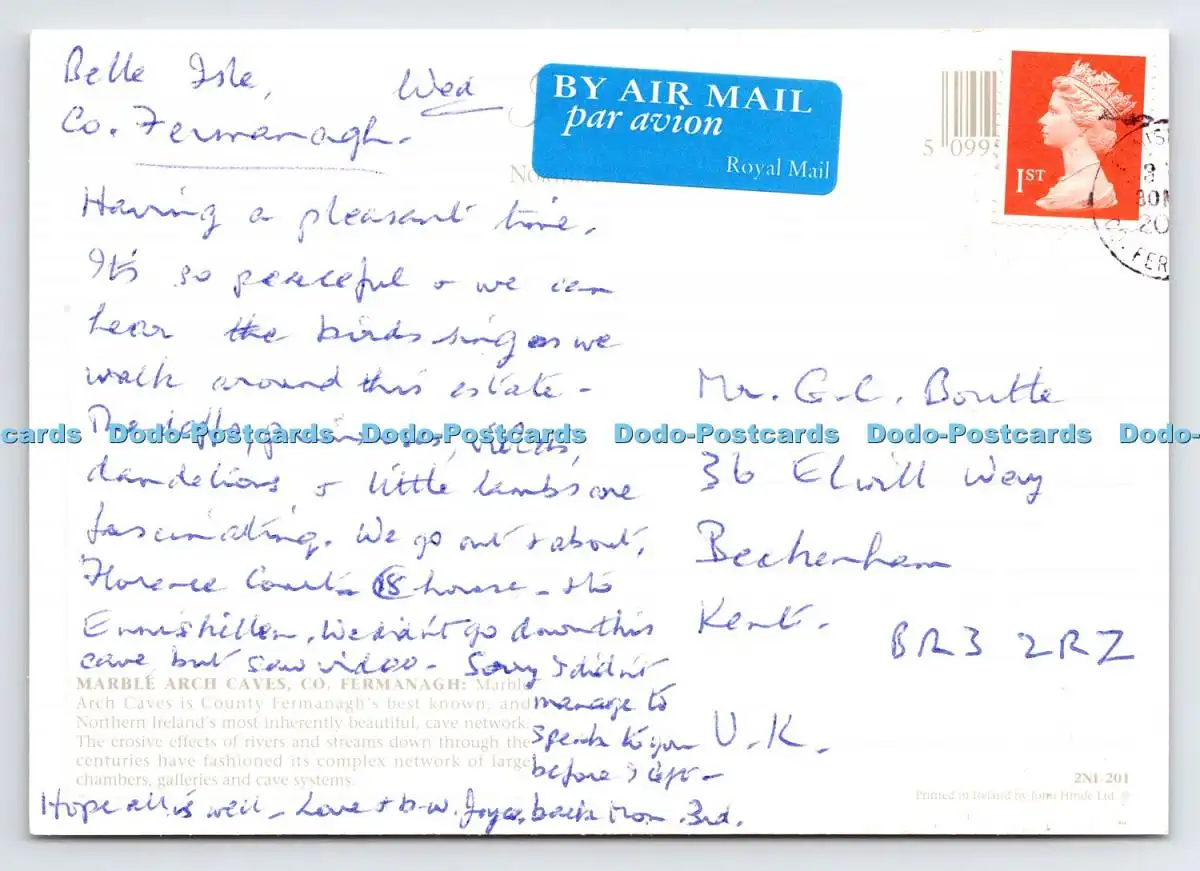 Belle Isle, Wed
Co. Fermanagh.
BY AIR MAIL
par avion
Royal Mail
5 099
1ST
30M
20
FER
Having a pleasant time.
It's so peaceful & we can
hear the birds sing as we
walk around this estate -
The daffs, primroses, violets,
dandelions & little lambs are
fascinating. We go out & about,
Florence Court 18 house - & to
Enniskillen. We didn't go down this
cave but saw video - Sorry I didn't
manage to
speak to you
before I left -
Hope all is well - Love & b.w. Joyce, back Mon 3rd.
Mr. G.C. Boutle
36 Elwill Way
Beckenham
Kent.
BR3 2RZ
U.K.
MARBLE ARCH CAVES, CO. FERMANAGH: Marble
Arch Caves is County Fermanagh's best known, and
Northern Ireland's most inherently beautiful, cave network.
The erosive effects of rivers and streams down through the
centuries have fashioned its complex network of large
chambers, galleries and cave systems.
2NI-201
Printed in Ireland by John Hinde Ltd.
cards Dodo-Postcards Dodo-Postcards Dodo-Postcards Dodo-Postcards Dodo-